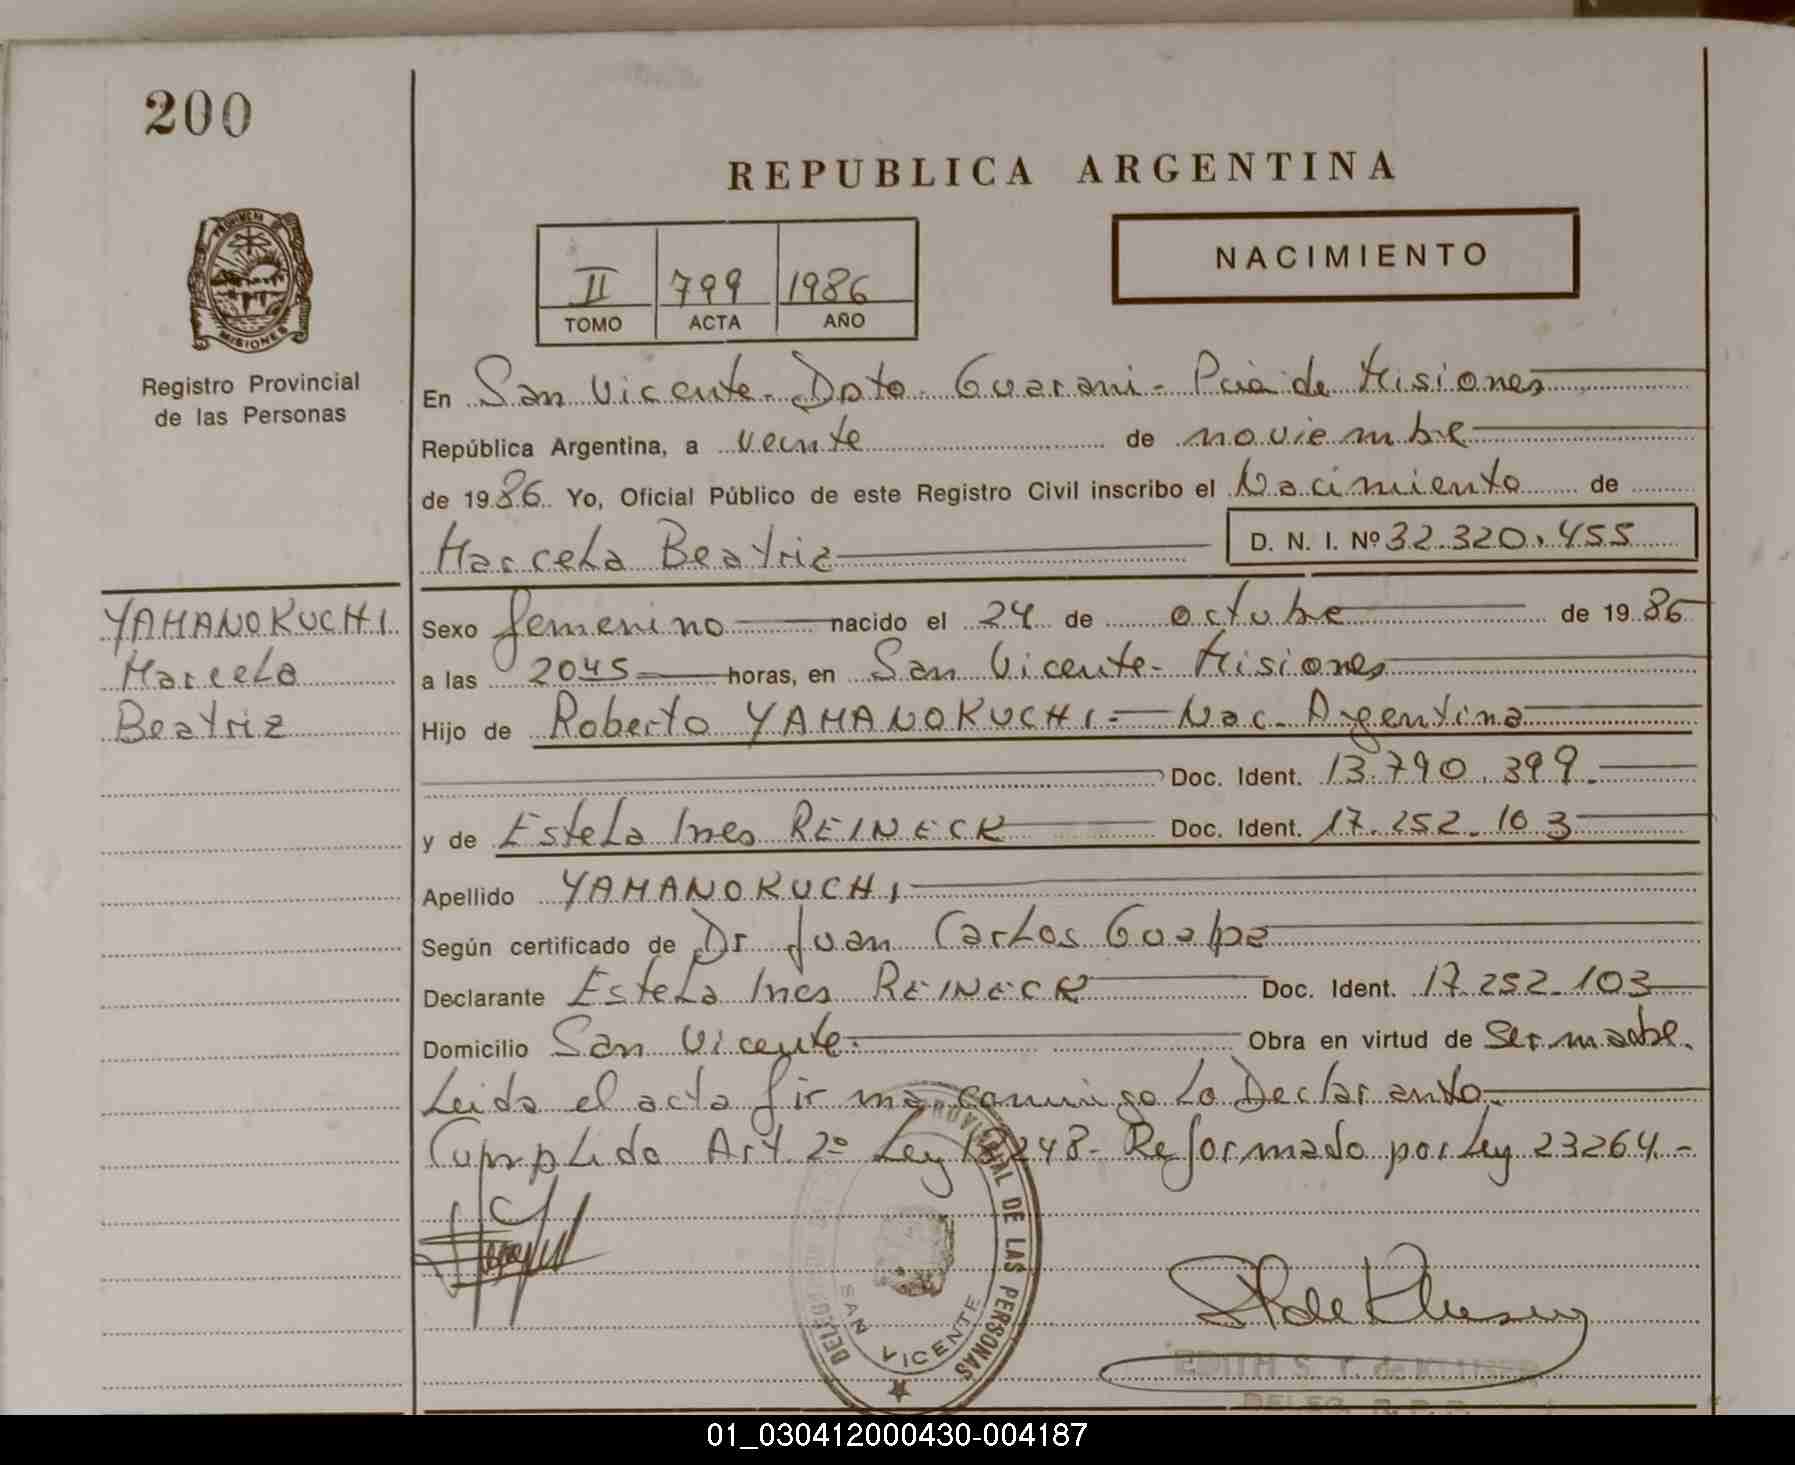 200
REPUBLICA ARGENTINA
PROVINCIA
MISIONES
Registro Provincial
de las Personas
II 799 1986
TOMO ACTA AÑO
NACIMIENTO
En San Vicente - Dpto. Guarani - Pcia de Misiones
República Argentina, a veinte de noviembre
de 1986. Yo, Oficial Público de este Registro Civil inscribo el Nacimiento de
Marcela Beatriz D. N. I. Nº 32.320.455
YAMANOKUCHI
Marcela
Beatriz
Sexo femenino nacido el 24 de octubre de 1986
a las 2045 horas, en San Vicente - Misiones
Hijo de Roberto YAMANOKUCHI = Nac. Argentina
Doc. Ident. 13.790.399.
y de Estela Ines REINECK Doc. Ident. 17.252.103
Apellido YAMANOKUCHI
Según certificado de Dr Juan Carlos
Declarante Estela Ines REINECK Doc. Ident. 17.252.103
Domicilio San Vicente. Obra en virtud de ser madre.
Leida el acta firma conmigo la Declarante.
Cumplido Art. 2º Ley 18248 - Reformado por Ley 23264. -
PROVINCIAL DE LAS PERSONAS
SAN VICENTE
EDITH S. T. de KLUSER
DELEG. R. P. P.
01_030412000430-004187